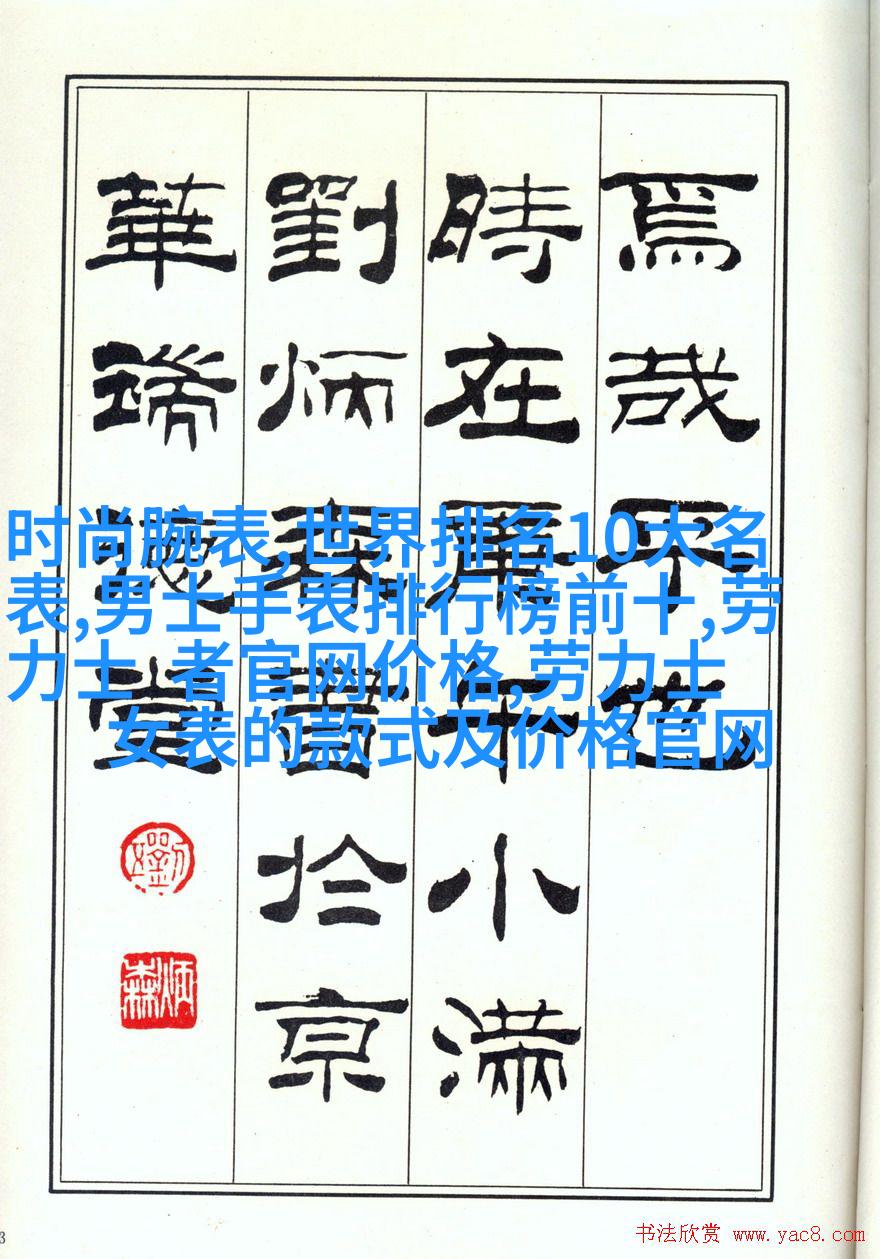 焉哉乎也
時在庚午小滿
劉炳森書於京
華堂
炳森
时尚腕表,世界排名10大名
表,男士手表排行榜前十,劳
力士 者官网价格,劳力士
女表的款式及价格官网
3
书法欣赏 www.yac8.com